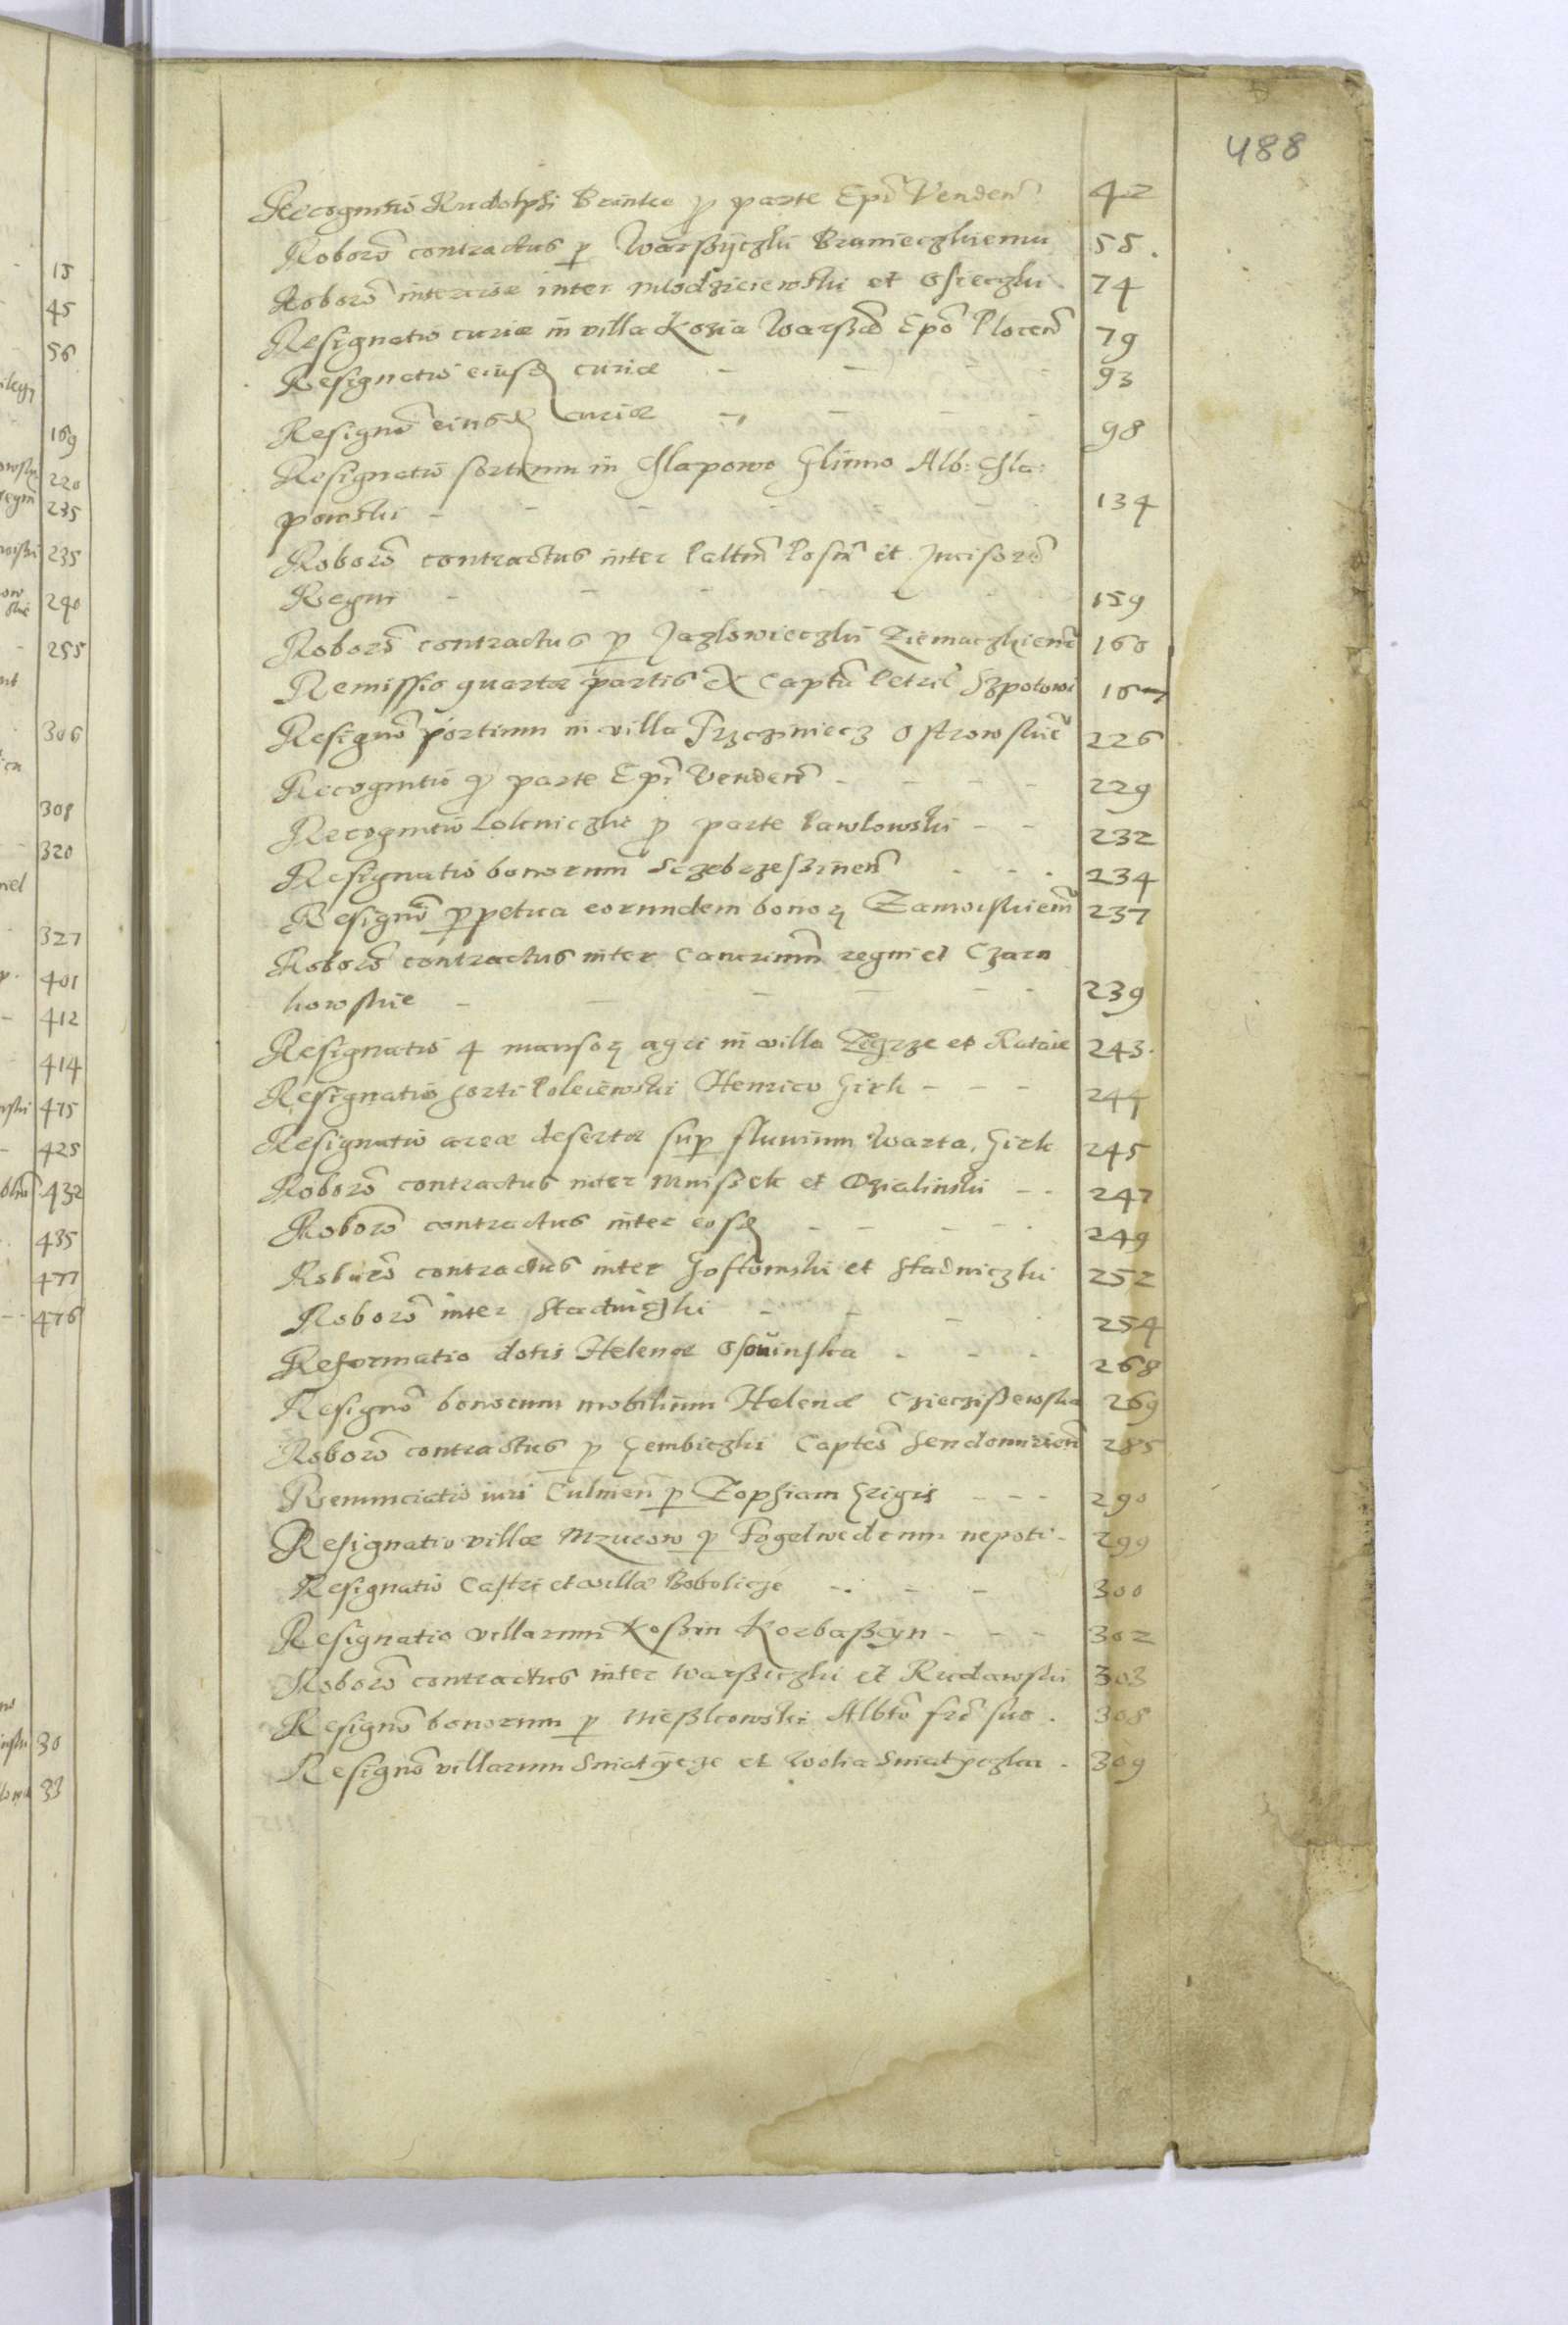 488
Recognitio Rudolphi p parte Epi Venden 42
Roboro contractus p Warßyczki Branieczkiemu 58.
Roboro intercise inter Mlodzieiewski et Osieczki 74
Resignatio curiæ in villa Kozia Warßæ Epo Plocen 79
Resignatio eiusd curiæ - - 93
Resigno eiusd curiæ - - 98
Resignatio sortium in Chlapowo Glinno Alb: Chla:
powski - - - - 134
Roboro contractus inter Paltin Posn et Incisore
Regni - - - - 159
Roboro contractus p Jazlowieczki Ziemaczkiem 160
Remissio quartæ partis ex Captu Petric Szpotowi 167
Resigno portium in villa Ostrowskie 226
Recognitio p parte Epi Venden - - - 229
Recognitio p parte Pawlowski - - 232
Resignatio bonorum Sczebrzeßinen - - . 234
Resigno ppetua eorundem bonoz Zamoiskiem 237
Roboro contractus inter Cancrium regni et Czarn
kowskie - - - - - - 239
Resignatio 4 mansoz agri in villa Zegrze et Rataie 243.
Resignatio horti Poleiewski Henrico Girk - - - 244
Resignatio areæ desertæ sup fluvium Warta, Girk 245
Roboro contractus inter Mnißek et Dzialinski - - 247
Roboro contractus inter eosd - - - - . 249
Roboro contractus inter Gostomski et Stadniczki 252
Roboro inter Stadniczki - - - . 254
Reformatio dotis Helenæ - - - 268
Resigno bonorum mobilium Helenæ Czieczißewska 269
Roboro contractus p Gembiczki Captes Sendomirien 285
Renunciatio iuri Culmen p Zophiam Grigis - - - 290
Resignatio villæ Mzurow p Fogelwederum nepoti - 299
Resignatio Castri et villæ Bobolicze - . - - 300
Resignatio villarum Koßin Korbaßcyn - - - 302
Roboro contractus inter Warßiczki et Rudawski 303
Resigno bonorum p Mießkowski Albto fri suo . 308
Resigno villarum Sniatycze et Wolia Sniatyczka . 309
15
45
56
169
220
235
235
240
255
306
308
320
327
401
412
414
415
425
432
435
477
476
30
33